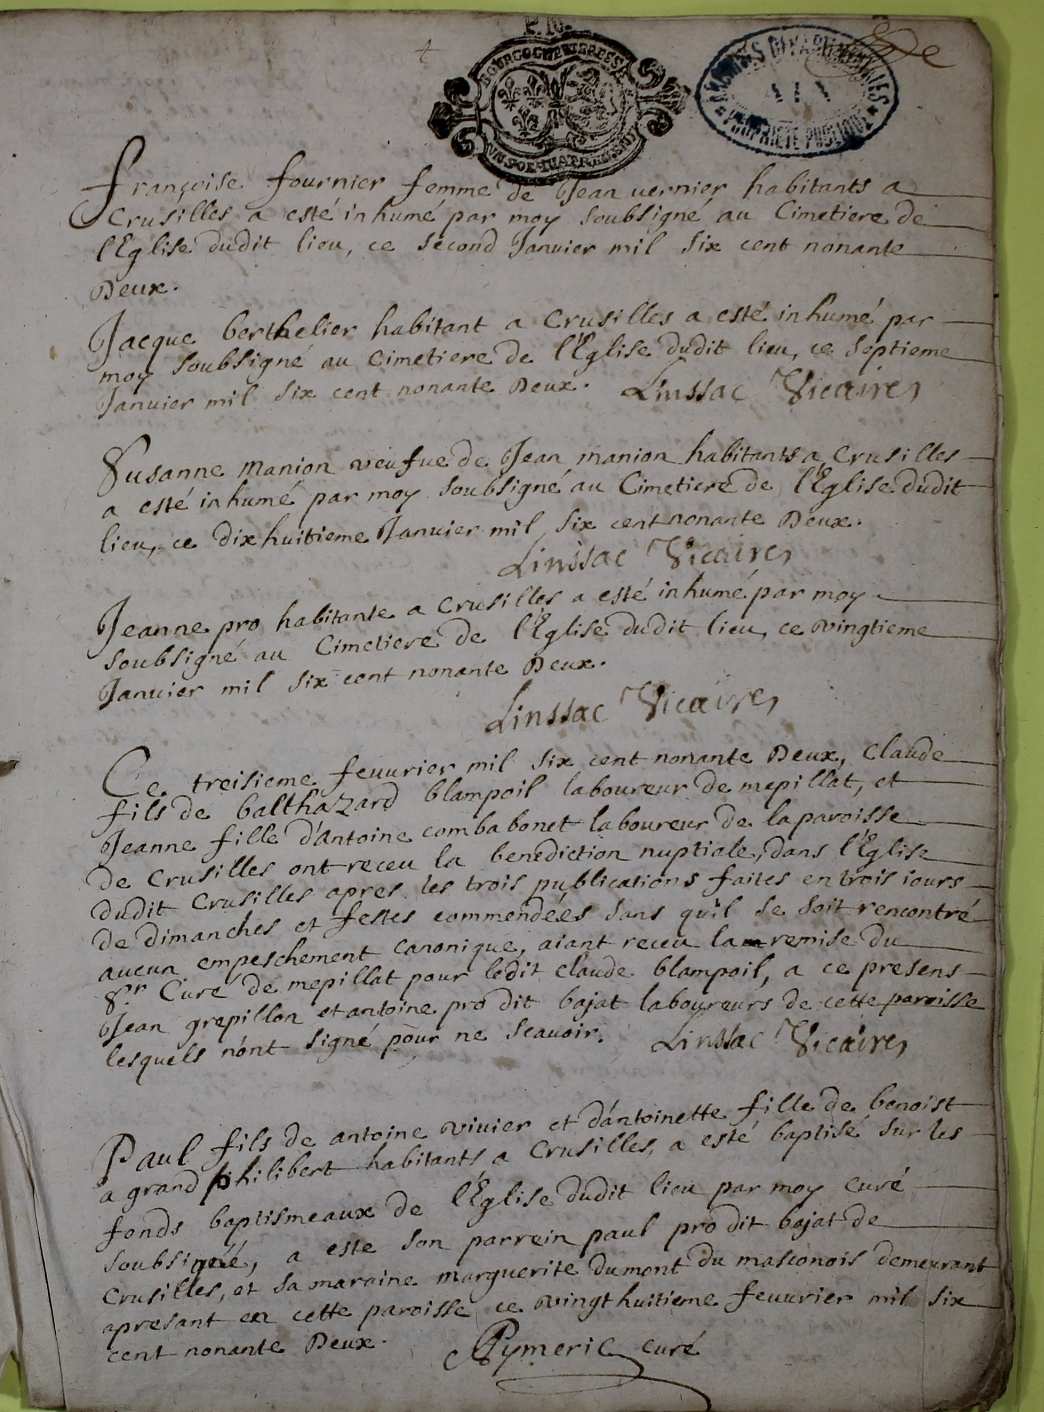 BOURGOGNE BRESSE
ARCHIVES DEPARTEMENTALES
AIN
PROPRIETE PUBLIQUE
françoise fournier femme de Jean vernier habitants a
Crusilles a esté inhumé par moy soubsigné au Cimetiere de
l'Eglise dudit lieu, ce second Janvier mil six cent nonante
Deux.
Jacque berthelier habitant a Crusilles a esté inhumé par
moy soubsigné au Cimetiere de l'Eglise dudit lieu, ce septieme
Janvier mil six cent nonante Deux. Linssac Vicaire,
Susanne manion veufue de Jean manion habitants a Crusilles
a esté inhumé par moy soubsigné au Cimetiere de l'Eglise dudit
lieu, ce dixhuitieme Janvier mil six cent nonante Deux.
Linssac Vicaire,
Jeanne pro habitante a Crusilles a esté inhumé par moy
soubsigné au Cimetiere de l'Eglise dudit lieu, ce vingtieme
Janvier mil six cent nonante Deux.
Linssac Vicaire,
Ce treisieme feuurier mil six cent nonante Deux, Claude
fils de balthazard blampoil laboureur de mepillat, et
Jeanne fille d'Antoine combabonet laboureur de la paroisse
de Crusilles ont receu la benediction nuptiale, dans l'Eglise
dudit Crusilles apres les trois publications faites en trois iours
de dimanches et festes commendées sans quil se soit rencontré
aucun empeschement canonique, aiant receu la remise du
Sr. Curé de mepillat pour ledit Claude blampoil, a ce presens
Jean grepillon et antoine pro dit bajat laboureurs de cette paroisse
lesquels n'ont signé pour ne scauoir. Linssac Vicaire,
Paul fils de antoine viuier et d'antoinette fille de benoist
a grand philibert habitants a Crusilles, a esté baptisé sur les
fonds baptismeaux de l'Eglise dudit lieu par moy Curé
soubsigné, a este son parrein paul pro dit bajat de
Crusilles, et sa maraine marguerite dumont du masconois demeurant
apresant en cette paroisse ce vingt huitieme feuurier mil six
cent nonante Deux. Aymeric curé